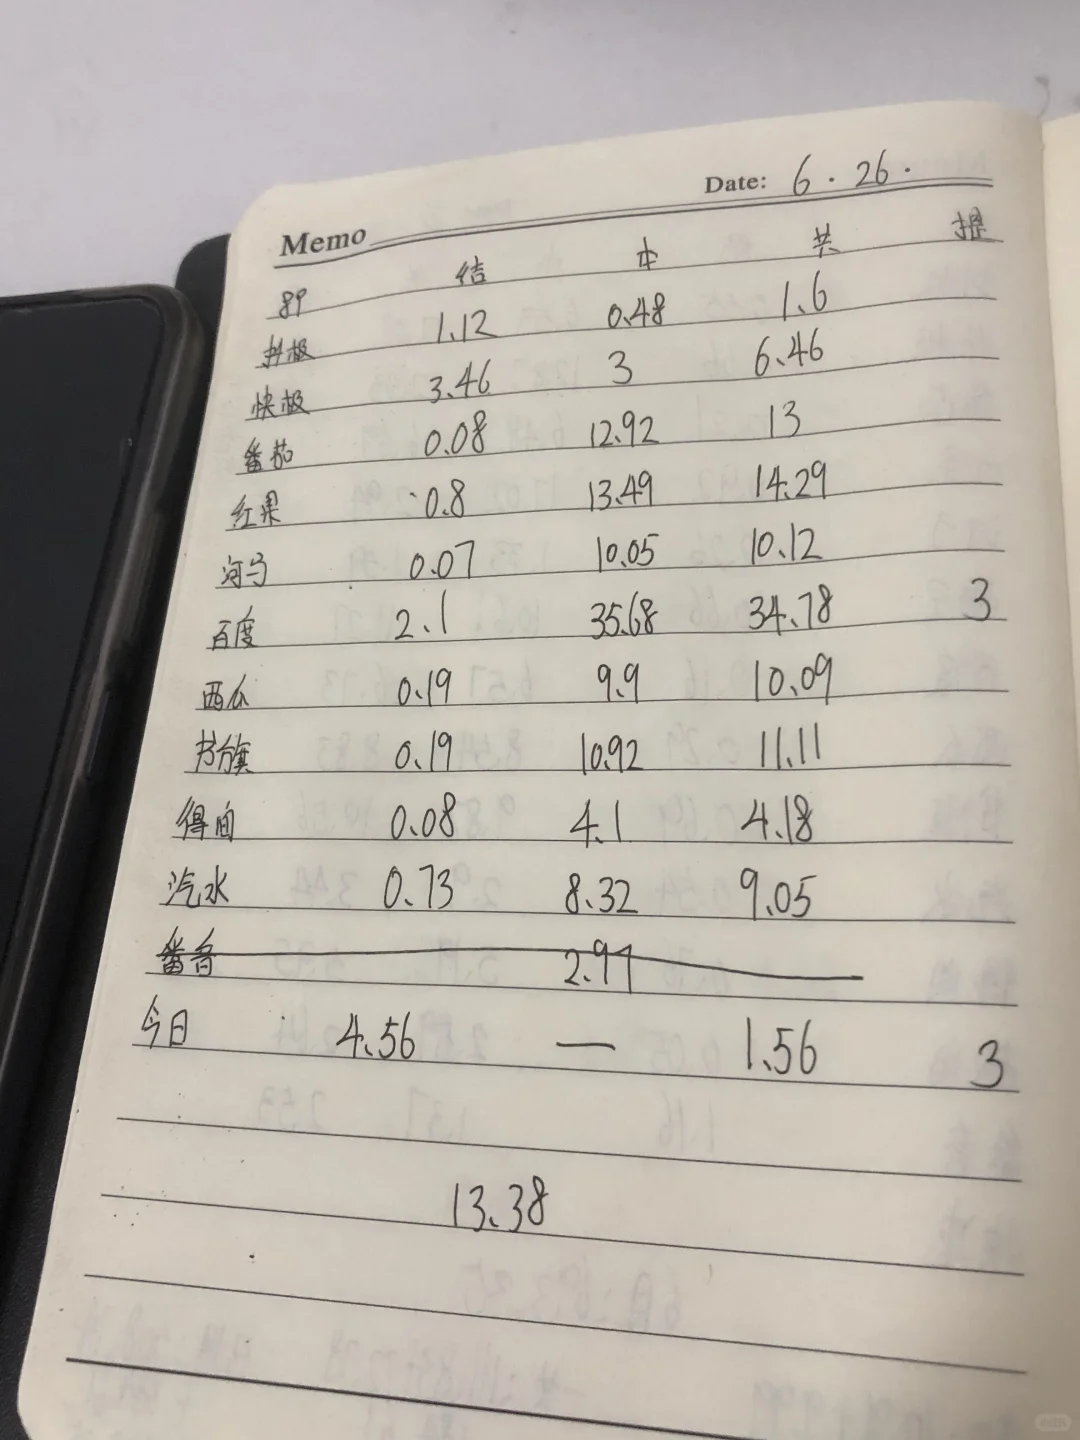 Date: 6.26.
Memo
89 结 本 共 提
抖极 1.12 0.48 1.6
快极 3.46 3 6.46
番茄 0.08 12.92 13
红果 0.8 13.49 14.29
河马 0.07 10.05 10.12
百度 2.1 35.68 34.78 3
西瓜 0.19 9.9 10.09
书旗 0.19 10.92 11.11
得间 0.08 4.1 4.18
汽水 0.73 8.32 9.05
番音 2.97
今日 4.56 — 1.56 3
13.38